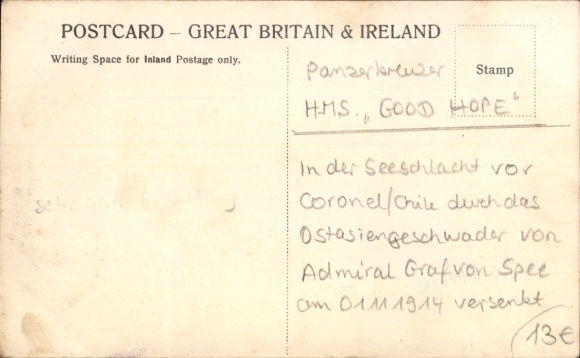 POSTCARD – GREAT BRITAIN & IRELAND
Writing Space for Inland Postage only.
Stamp
Panzerkreuzer
H.M.S. „GOOD HOPE"
In der Seeschlacht vor
Coronel/Chile durch das
Ostasiengeschwader von
Admiral Graf von Spee
am 01.11.1914 versenkt
sehr gute Erhaltung
13€